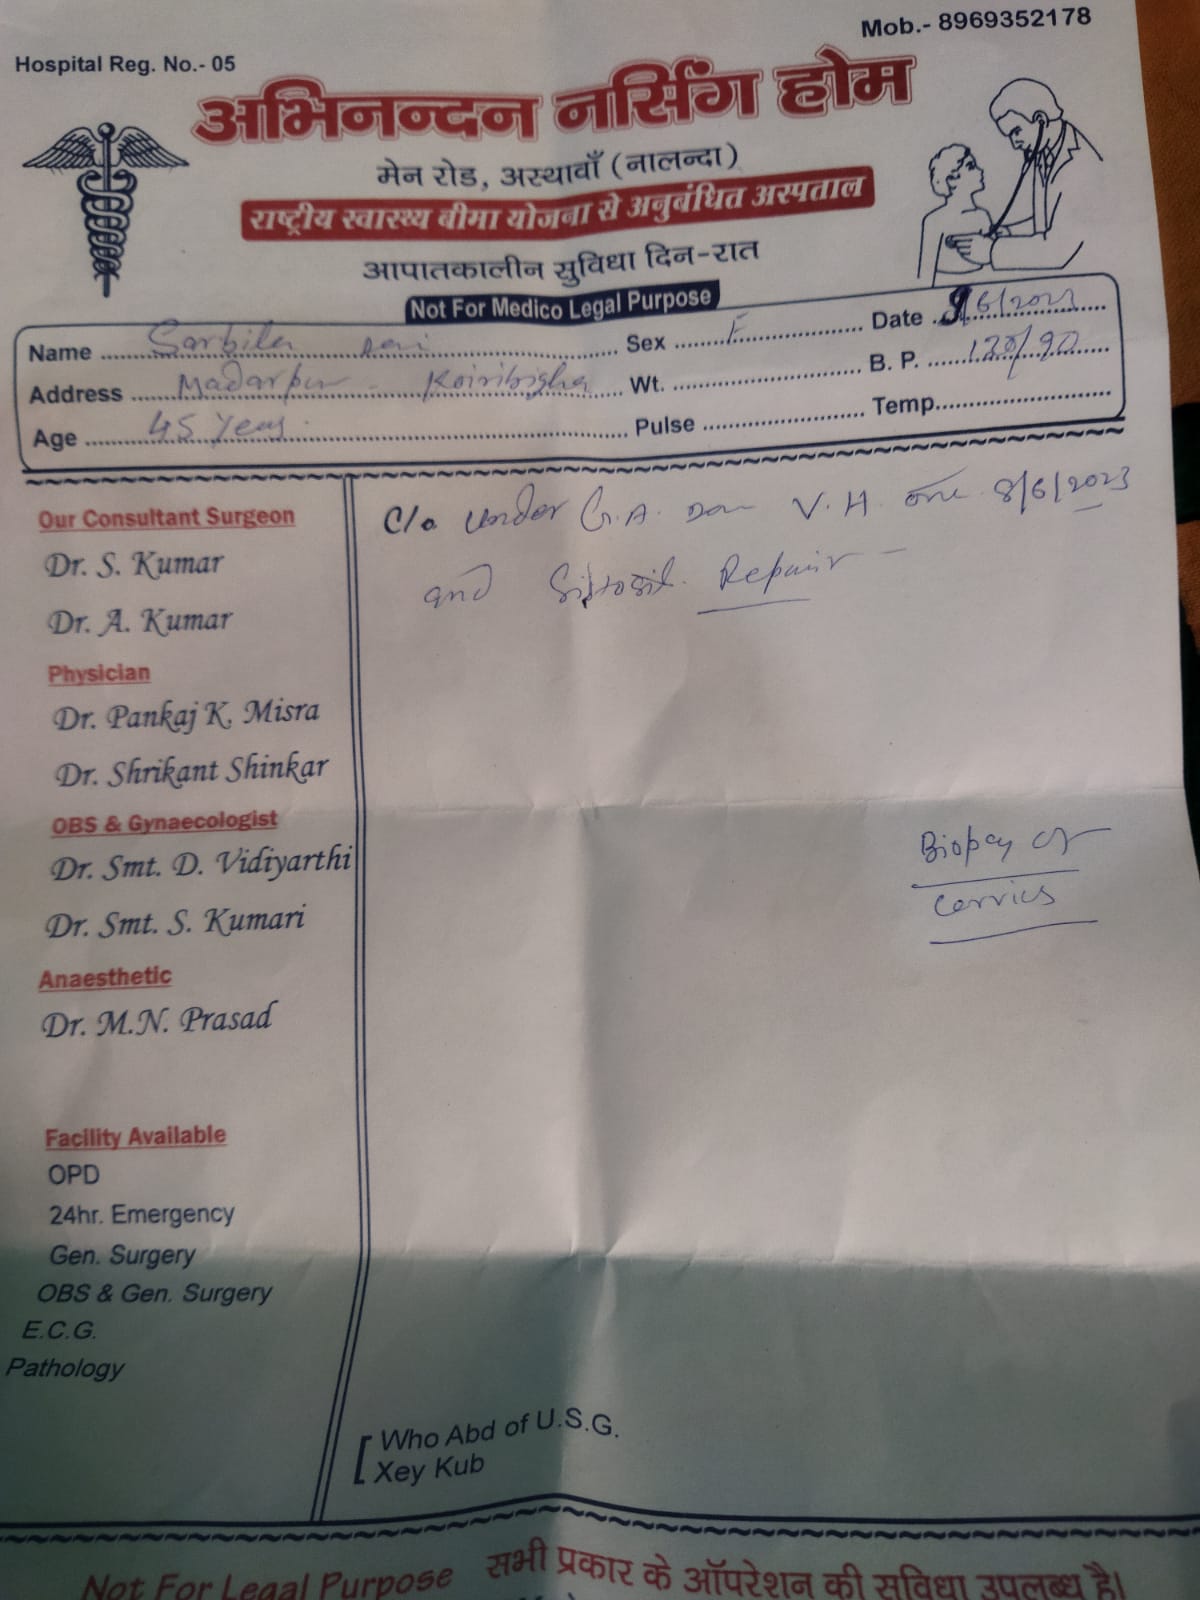 Mob.- 8969352178
Hospital Reg. No.- 05
अभिनन्दन नर्सिंग होम
मेन रोड, अस्थावाँ (नालन्दा)
राष्ट्रीय स्वास्थ्य बीमा योजना से अनुबंधित अस्पताल
आपातकालीन सुविधा दिन-रात
Not For Medico Legal Purpose
Name Sarbila Devi Sex F Date 9/6/2023
Address Madarpur - Koiribigha Wt. B. P. 120/90
Age 45 Years Pulse Temp.
C/o Under G.A. V.H. 8/6/2023
and Sistosil Repair
Our Consultant Surgeon
Dr. S. Kumar
Dr. A. Kumar
Physician
Dr. Pankaj K. Misra
Dr. Shrikant Shinkar
OBS & Gynaecologist
Dr. Smt. D. Vidiyarthi
Dr. Smt. S. Kumari
Anaesthetic
Dr. M.N. Prasad
Facility Available
OPD
24hr. Emergency
Gen. Surgery
OBS & Gen. Surgery
E.C.G.
Pathology
Biopsy of
Cervics
Who Abd of U.S.G.
Xey Kub
Not For Legal Purpose सभी प्रकार के ऑपरेशन की सुविधा उपलब्ध है।